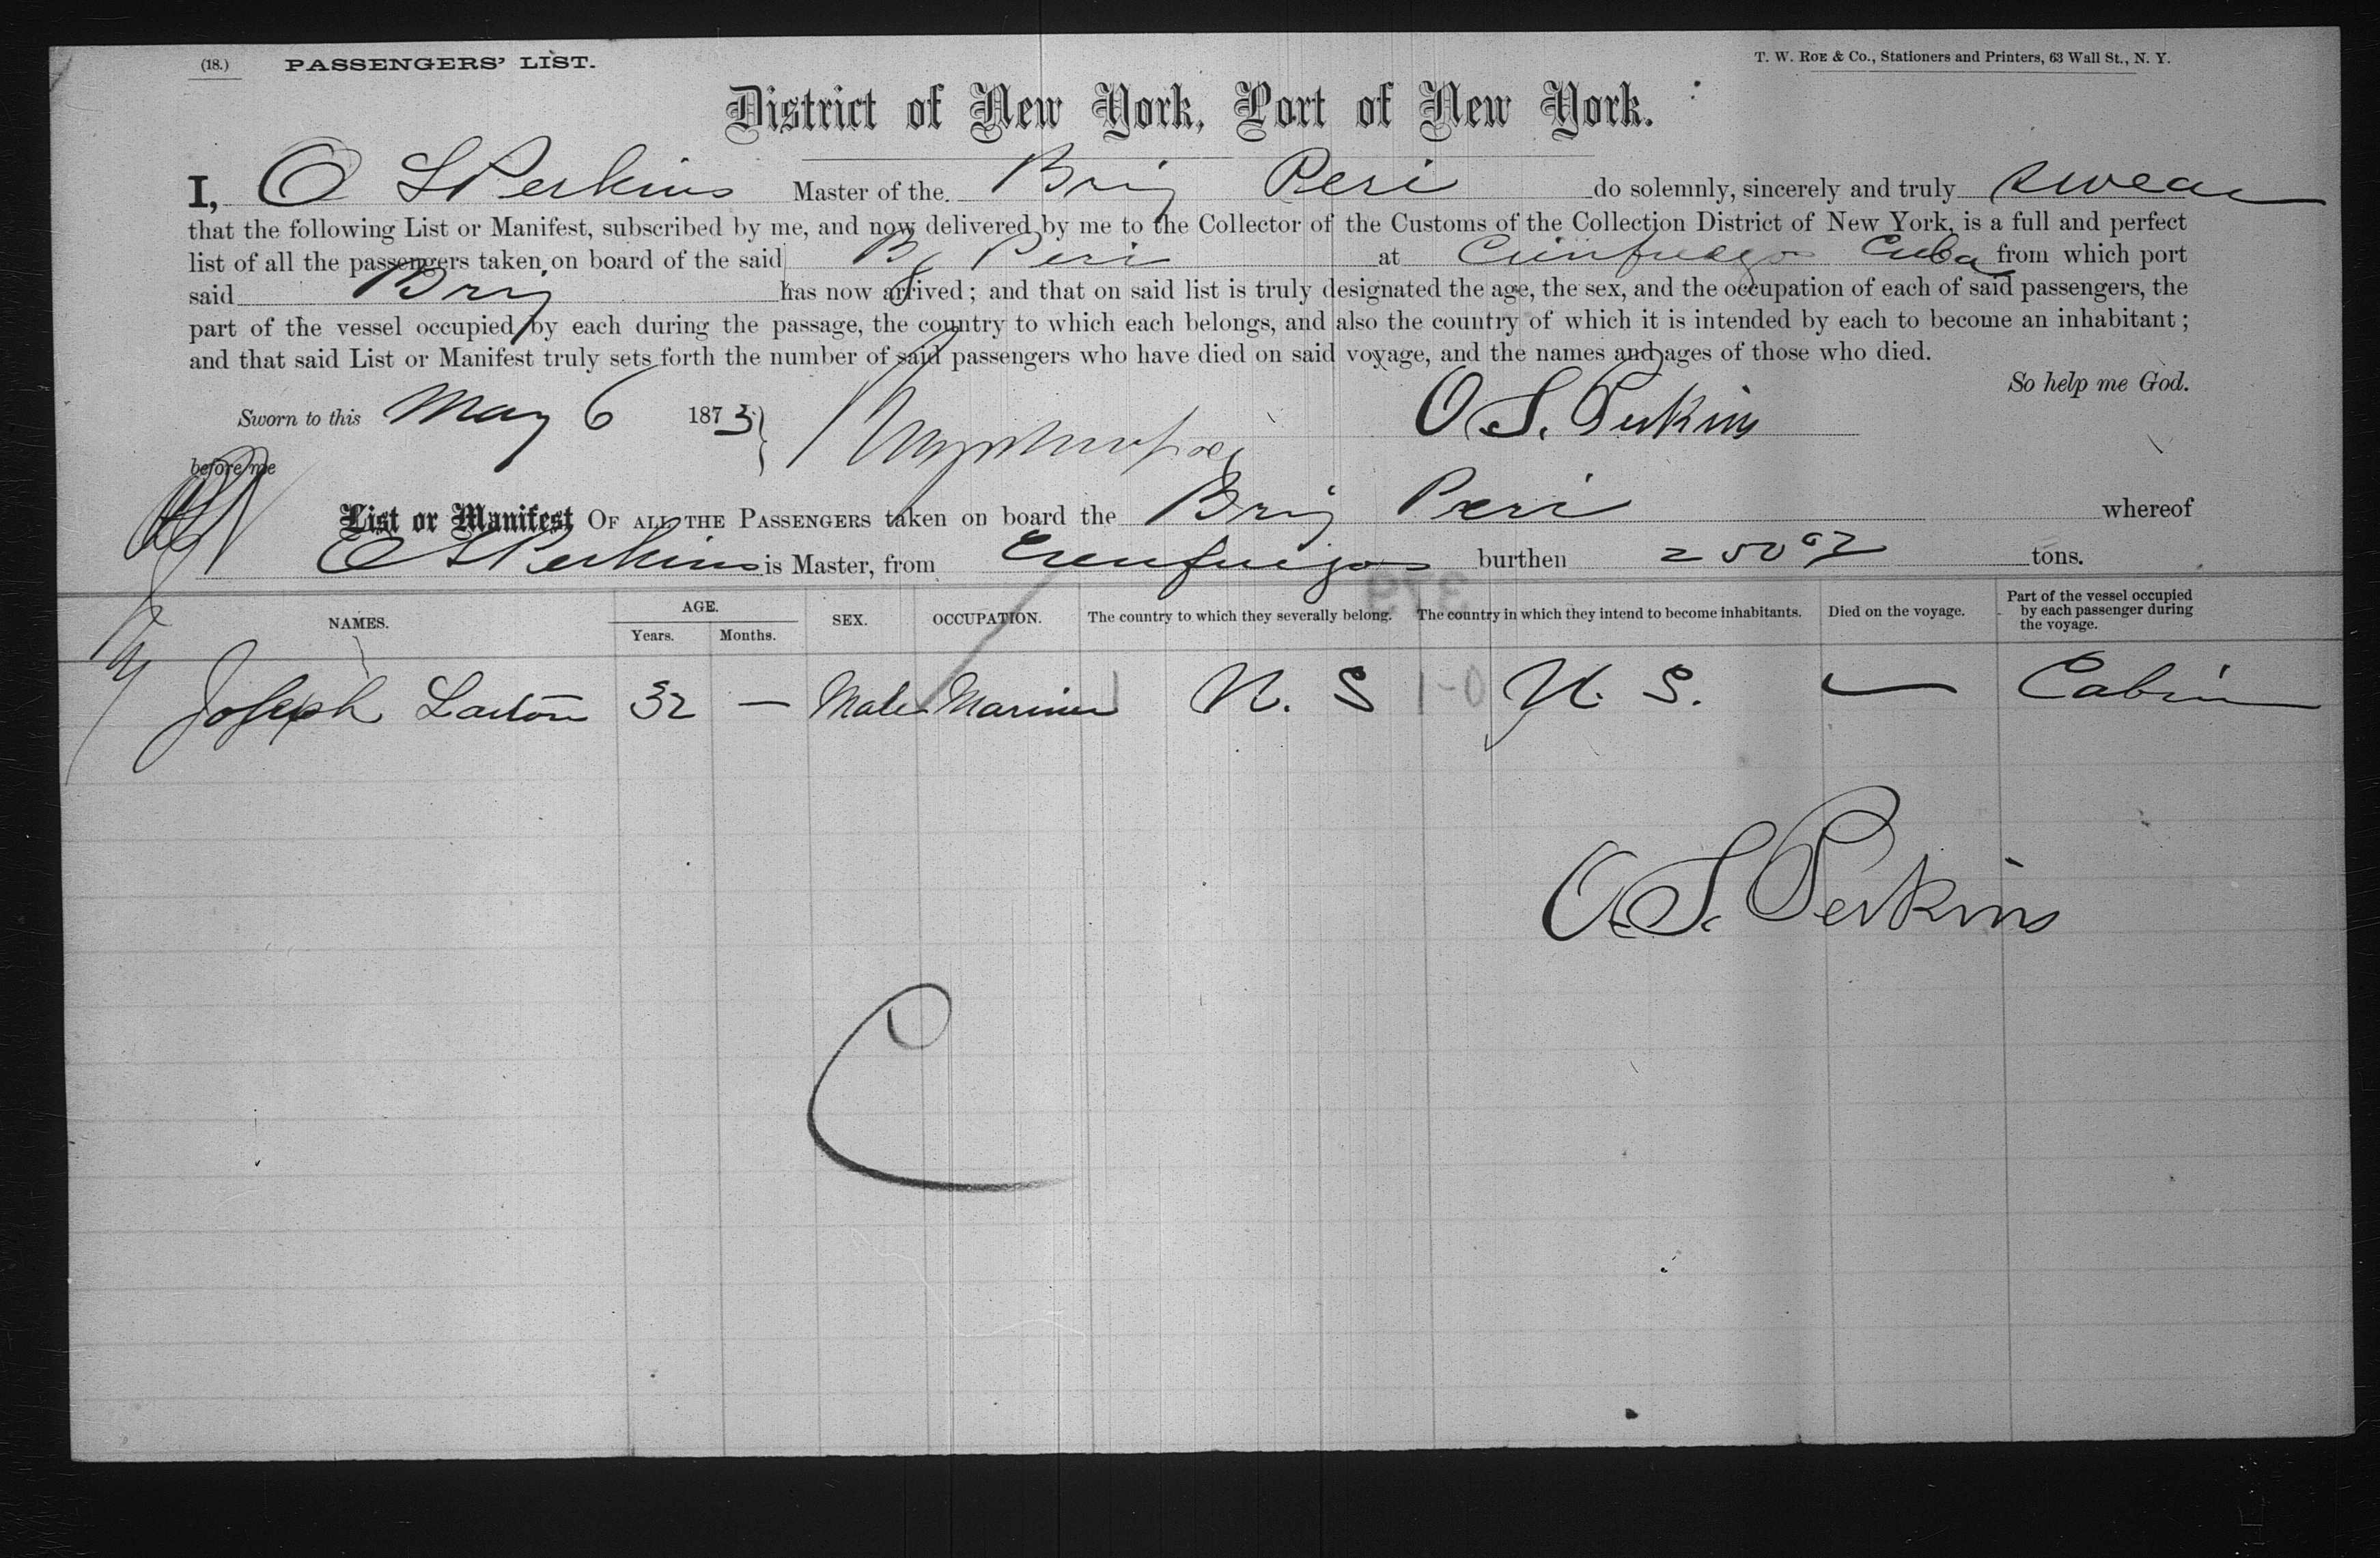 (18.) PASSENGERS' LIST. T. W. ROE & Co., Stationers and Printers, 63 Wall St., N. Y.
District of New York, Port of New York.
I, O S Perkins Master of the Brig Peri do solemnly, sincerely and truly swear
that the following List or Manifest, subscribed by me, and now delivered by me to the Collector of the Customs of the Collection District of New York, is a full and perfect
list of all the passengers taken on board of the said Bg Peri at Cienfuego Cuba from which port
said Brig has now arrived; and that on said list is truly designated the age, the sex, and the occupation of each of said passengers, the
part of the vessel occupied by each during the passage, the country to which each belongs, and also the country of which it is intended by each to become an inhabitant;
and that said List or Manifest truly sets forth the number of said passengers who have died on said voyage, and the names and ages of those who died.
So help me God.
Sworn to this May 6 1873 O. S. Perkins
before me
List or Manifest OF ALL THE PASSENGERS taken on board the Brig Peri whereof
O S Perkins is Master, from Cienfuegos burthen 250 tons.
NAMES. AGE. Years. Months. SEX. OCCUPATION. The country to which they severally belong. The country in which they intend to become inhabitants. Died on the voyage. Part of the vessel occupied by each passenger during the voyage.
Joseph 32 — Male Mariner U. S U. S. — Cabin
O. S. Perkins